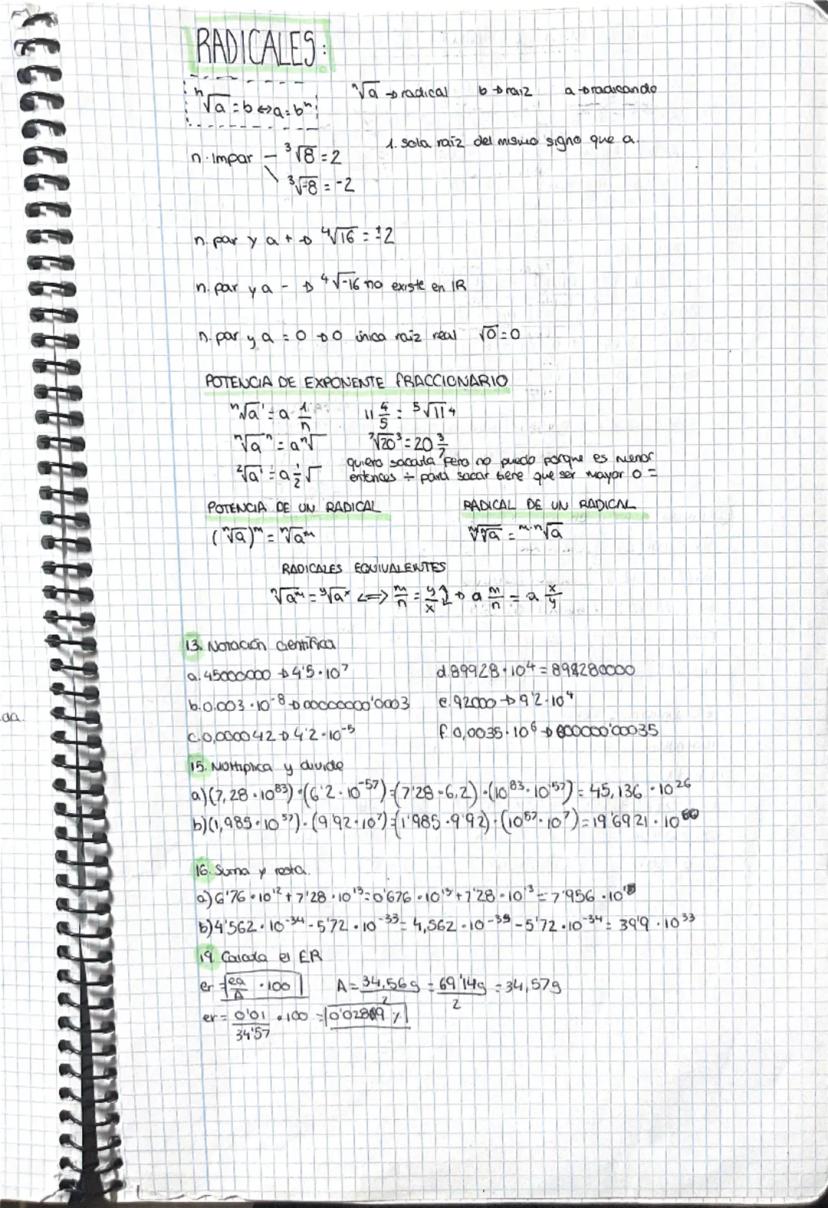 RADICALES:
ⁿ√a = b ⇔ a = bⁿ    ⁿ√a → radical    b → raiz    a → radicando
n. Impar — ³√8 = 2    1. sola raíz del mismo signo que a.
\ ³√-8 = -2
n. par y a + → ⁴√16 = ±2
n. par y a - → ⁴√-16 no existe en IR
n. par y a = 0 → 0 única raiz real √0 = 0
POTENCIA DE EXPONENTE FRACCIONARIO
ⁿ√a¹ = a 1/n    11 4/5 = ⁵√11⁴
ⁿ√aⁿ = aⁿ√    ⁷√20³ = 20 3/7
²√a¹ = a 1/2 √    quiero sacarla pero no puedo porque es menor
entonces ÷ para sacar tiene que ser mayor o =
POTENCIA DE UN RADICAL    RADICAL DE UN RADICAL
(ⁿ√a)ᵐ = ⁿ√aᵐ    ᵐ√ⁿ√a = ᵐ·ⁿ√a
RADICALES EQUIVALENTES
ⁿ√aᵐ = ʸ√aˣ ⇔ m/n = y/x → a m/n = a x/y
13. Notación científica
a. 45000000 → 4'5·10⁷    d. 89928·10⁴ = 899280000
b. 0.003·10⁻⁸ → 00000000'0003    e. 92000 → 9'2·10⁴
c. 0,000042 → 4'2·10⁻⁵    f. 0,0035·10⁶ → 000000'00035
da.
15. Multiplica y divide
a) (7,28·10⁸³)·(6'2·10⁻⁵⁷) = (7'28·6,2)·(10⁸³·10⁻⁵⁷) = 45,136·10²⁶
b) (1,985·10⁵⁷)·(9'92·10⁷) = (1'985·9'92)·(10⁵⁷·10⁷) = 19'6921·10⁶⁰
16. Suma y resta.
a) 6'76·10¹² + 7'28·10¹³ = 0'676·10¹³ + 7'28·10¹³ = 7'956·10¹³
b) 4'562·10⁻³⁴ - 5'72·10⁻³³ = 4,562·10⁻³⁵ - 5'72·10⁻³⁴ = 39'9·10³³
19. Calcula el ER
er = ea/A ·100    A = 34,56g/2 = 69'14g/2 = 34,57g
er = 0'01/34'57 ·100 = 0'02889 %